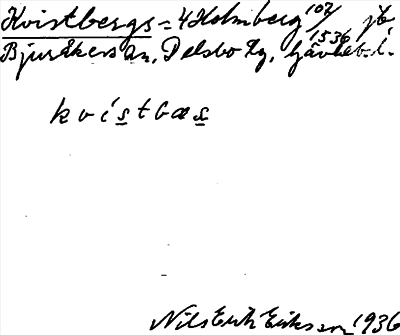 Kvistbergs = 4 Holmberg 102/1536 jb
Bjuråkers sn, Delsbo tg, Gävleb. l.
kvistbas
Nils Erik Eriksson 1936